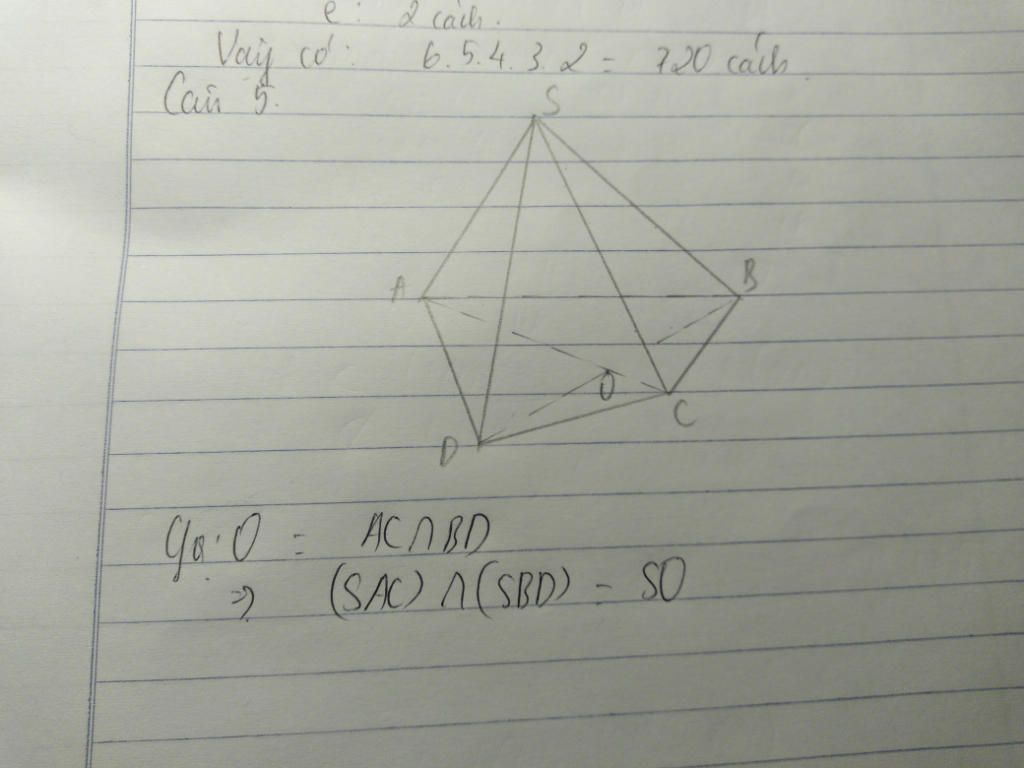 e: 2 cách.
Vậy có: 6.5.4.3.2 = 720 cách.
Câu 5.
S
A
B
O
C
D
Gọi O = AC∩BD
=> (SAC) ∩ (SBD) = SO